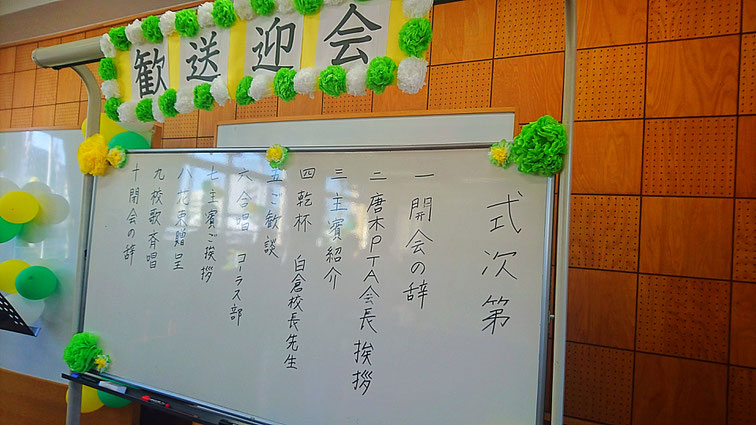 歓送迎会
式次第
一 開会の辞
二 唐木PTA会長 挨拶
三 主賓紹介
四 乾杯 白倉校長先生
五 ご歓談
六 合唱 コーラス部
七 主賓ご挨拶
八 花束贈呈
九 校歌斉唱
十 閉会の辞